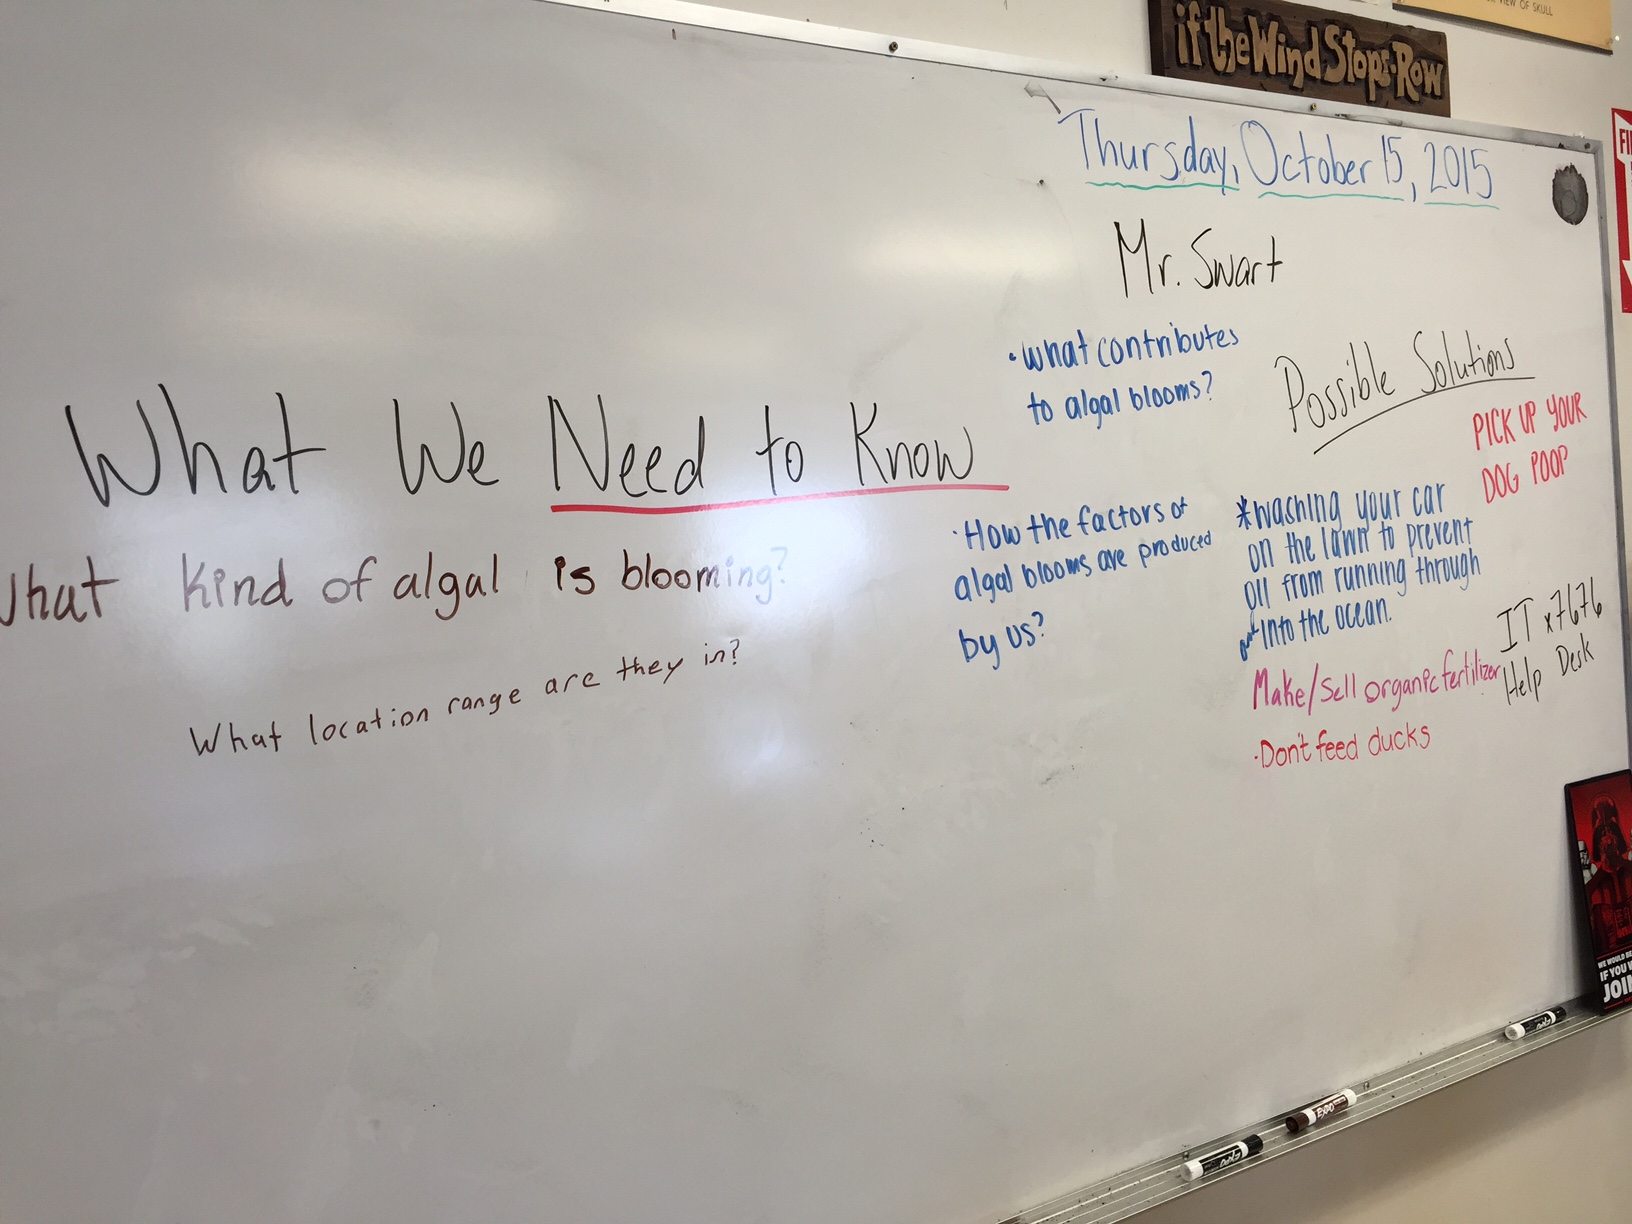 VIEW OF SKULL
if the Wind Stops-Row
Thursday, October 15, 2015
Mr. Swart
What We Need to Know
What kind of algal is blooming?
What location range are they in?
·What contributes
to algal blooms?
·How the factors of
algal blooms are produced
by us?
Possible Solutions
PICK UP YOUR
DOG POOP
*Waching your car
on the lawn to prevent
oil from running through
into the ocean.
Make/Sell organic fertilizer
·Don't feed ducks
IT x7676
Help Desk
WE WOULD BE
IF YOU W
JOIN
EXPO
EXPO
EXPO